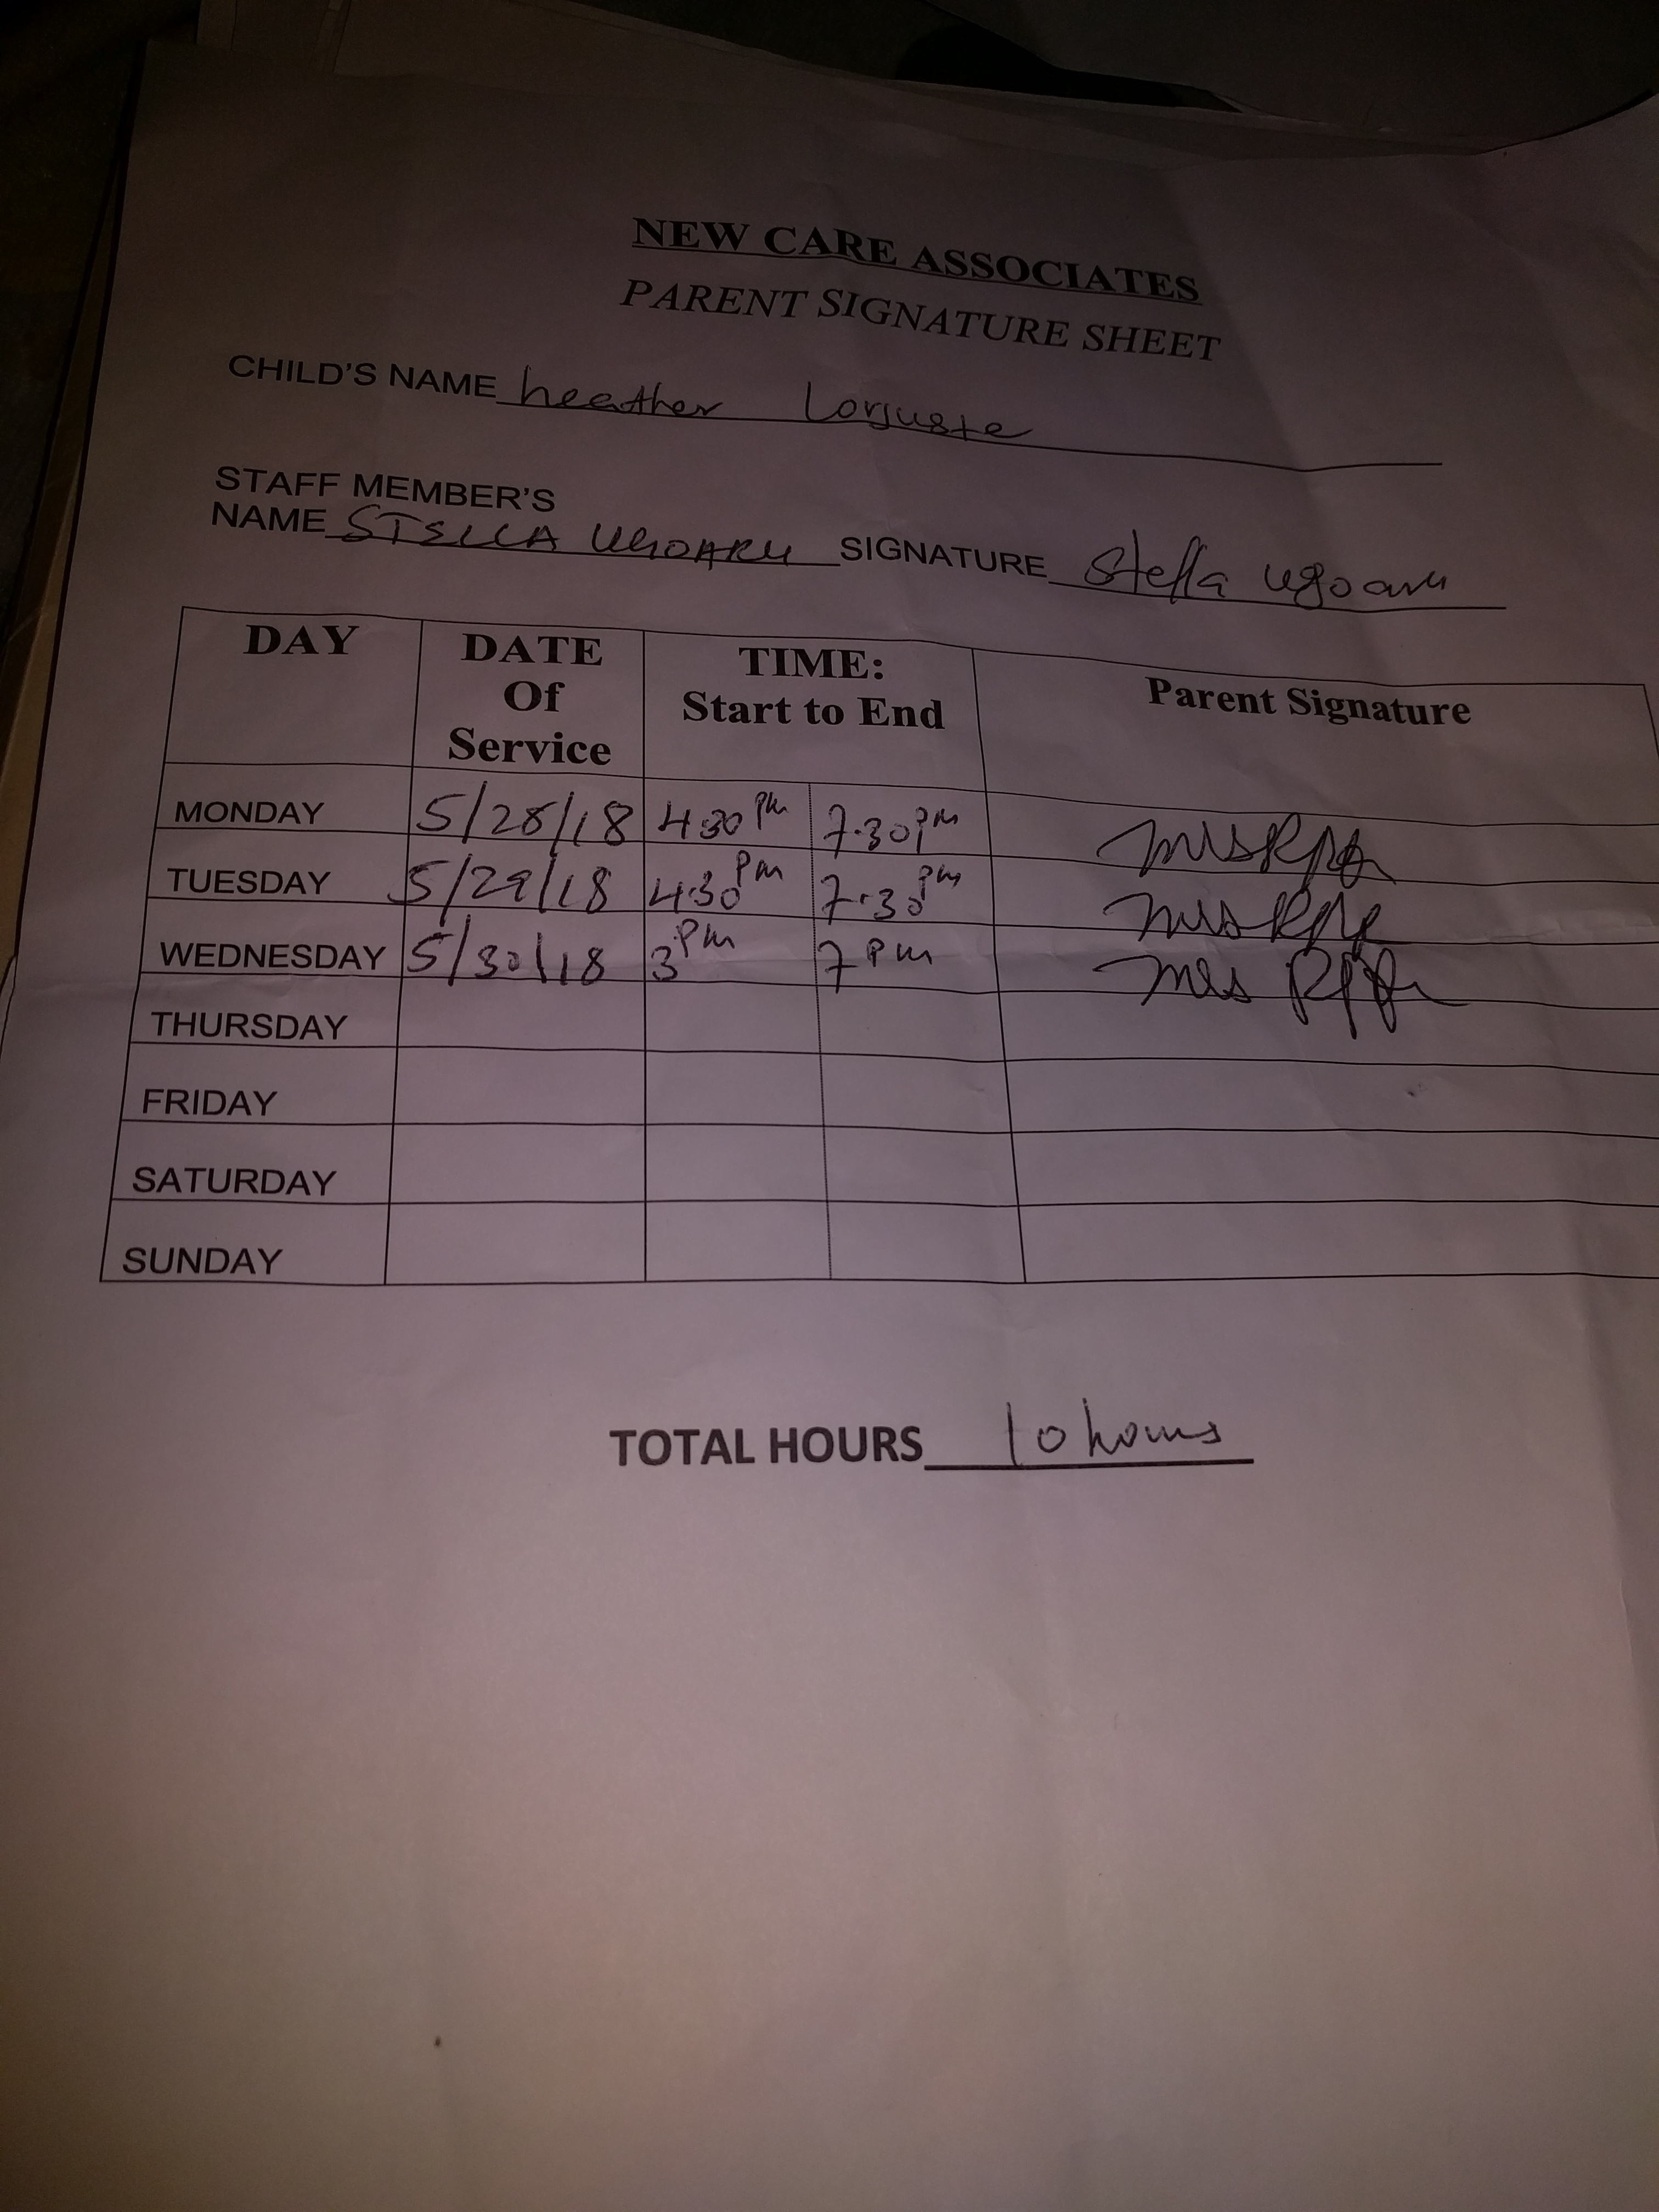 NEW CARE ASSOCIATES
PARENT SIGNATURE SHEET
CHILD'S NAME heather Lorjuste
STAFF MEMBER'S
NAME STELLA UGOARU SIGNATURE Stella Ugoaru
DAY DATE Of Service TIME: Start to End Parent Signature
MONDAY 5/28/18 4:30 pm 7.30pm
TUESDAY 5/29/18 4:30 pm 7.30 pm
WEDNESDAY 5/30/18 3 pm 7 pm
THURSDAY
FRIDAY
SATURDAY
SUNDAY
TOTAL HOURS 10 hours